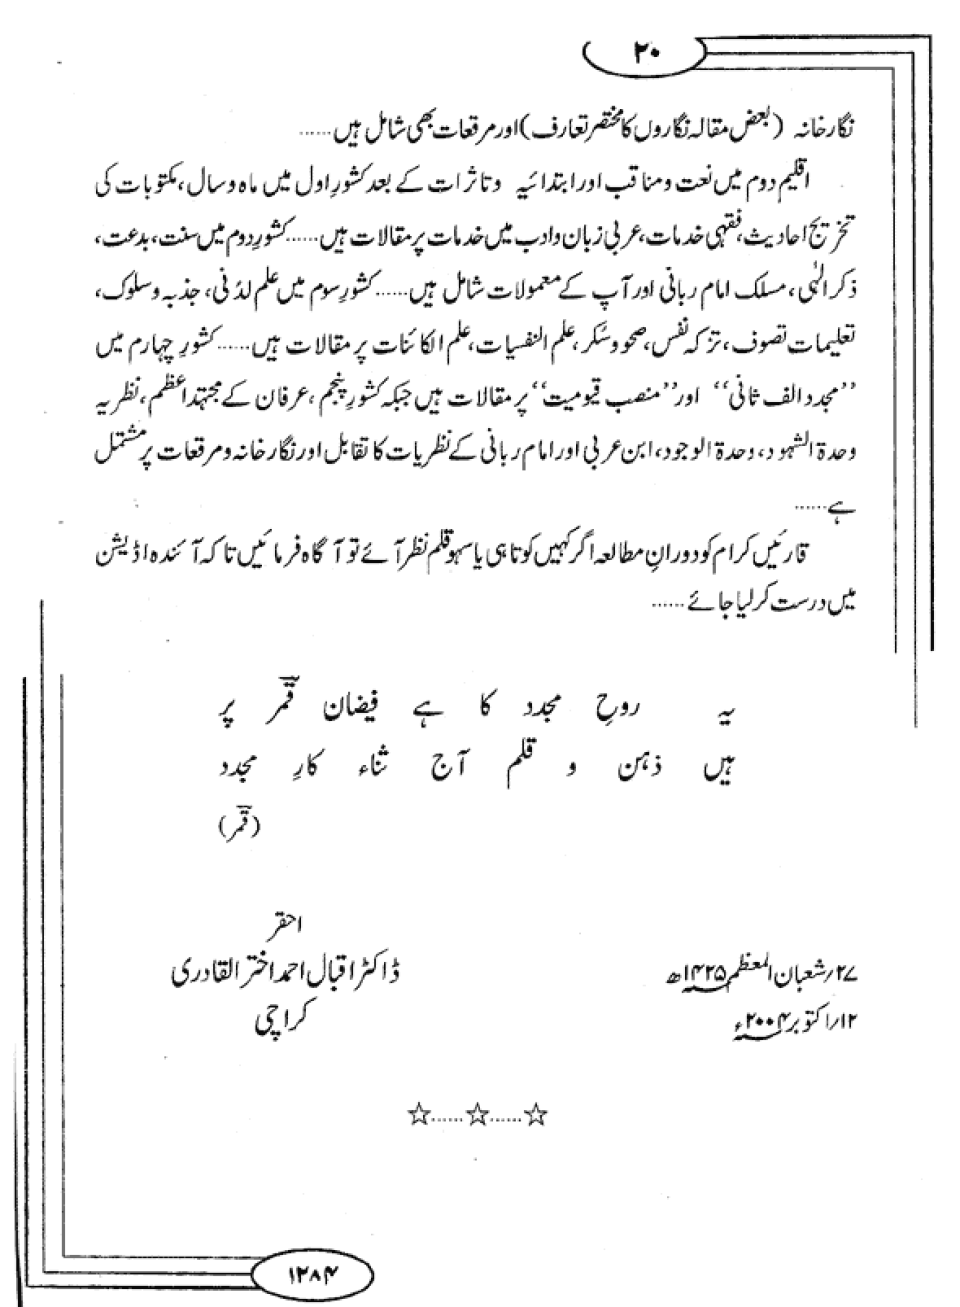 ۲۰
نگارخانہ (بعض مقالہ نگاروں کا مختصر تعارف) اور مرقعات بھی شامل ہیں......
اقلیم دوم میں نعت و مناقب اور ابتدائیہ و تاثرات کے بعد کشورِ اول میں ماہ و سال، مکتوبات کی
تخریج احادیث، فقہی خدمات، عربی زبان و ادب میں خدمات پر مقالات ہیں......کشورِ دوم میں سنت، بدعت،
ذکر الٰہی، مسلک امام ربانی اور آپ کے معمولات شامل ہیں......کشورِ سوم میں علم لدنی، جذبہ و سلوک،
تعلیمات تصوف، تزکہ نفس، صحو و سُکر، علم النفسیات، علم الکائنات پر مقالات ہیں......کشورِ چہارم میں
’’مجدد الف ثانی‘‘ اور ’’منصب قیومیت‘‘ پر مقالات ہیں جبکہ کشورِ پنجم، عرفان کے مجتہد اعظم، نظریہ
وحدۃ الشہود، وحدۃ الوجود، ابن عربی اور امام ربانی کے نظریات کا تقابل اور نگارخانہ و مرقعات پر مشتمل
ہے......
قارئیں کرام کو دورانِ مطالعہ اگر کہیں کوتاہی یا سہو قلم نظر آئے تو آگاہ فرمائیں تاکہ آئندہ اڈیشن
میں درست کرلیا جائے......
یہ روحِ مجدد کا ہے فیضان قمرؔ پر
ہیں ذہن و قلم آج ثناء کارِ مجدد
(قمرؔ)
احقر
ڈاکٹر اقبال احمد اختر القادری
کراچی
۲۷/شعبان المعظم ۱۴۲۵ھ
۱۲/اکتوبر ۲۰۰۴ء
☆......☆......☆
۱۲۸۴